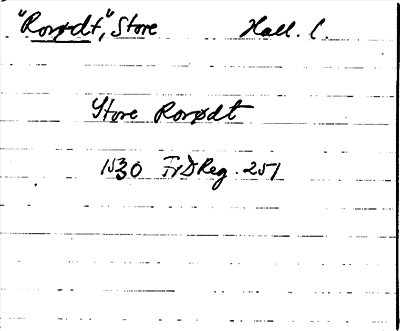 "Rorødt", Store Hall. C.
Store Rorødt
1530 FrDReg. 251